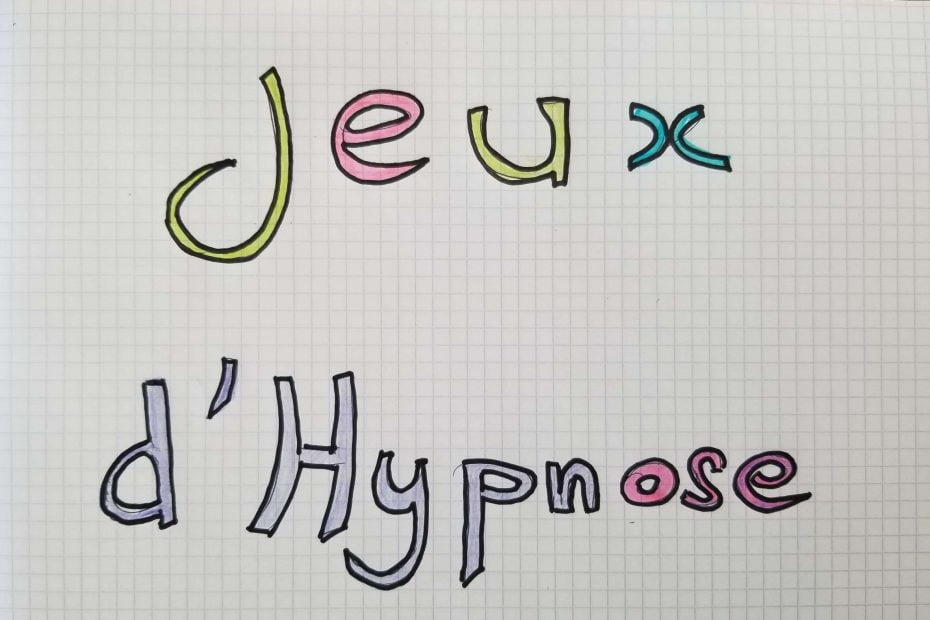 Jeux
d'Hypnose